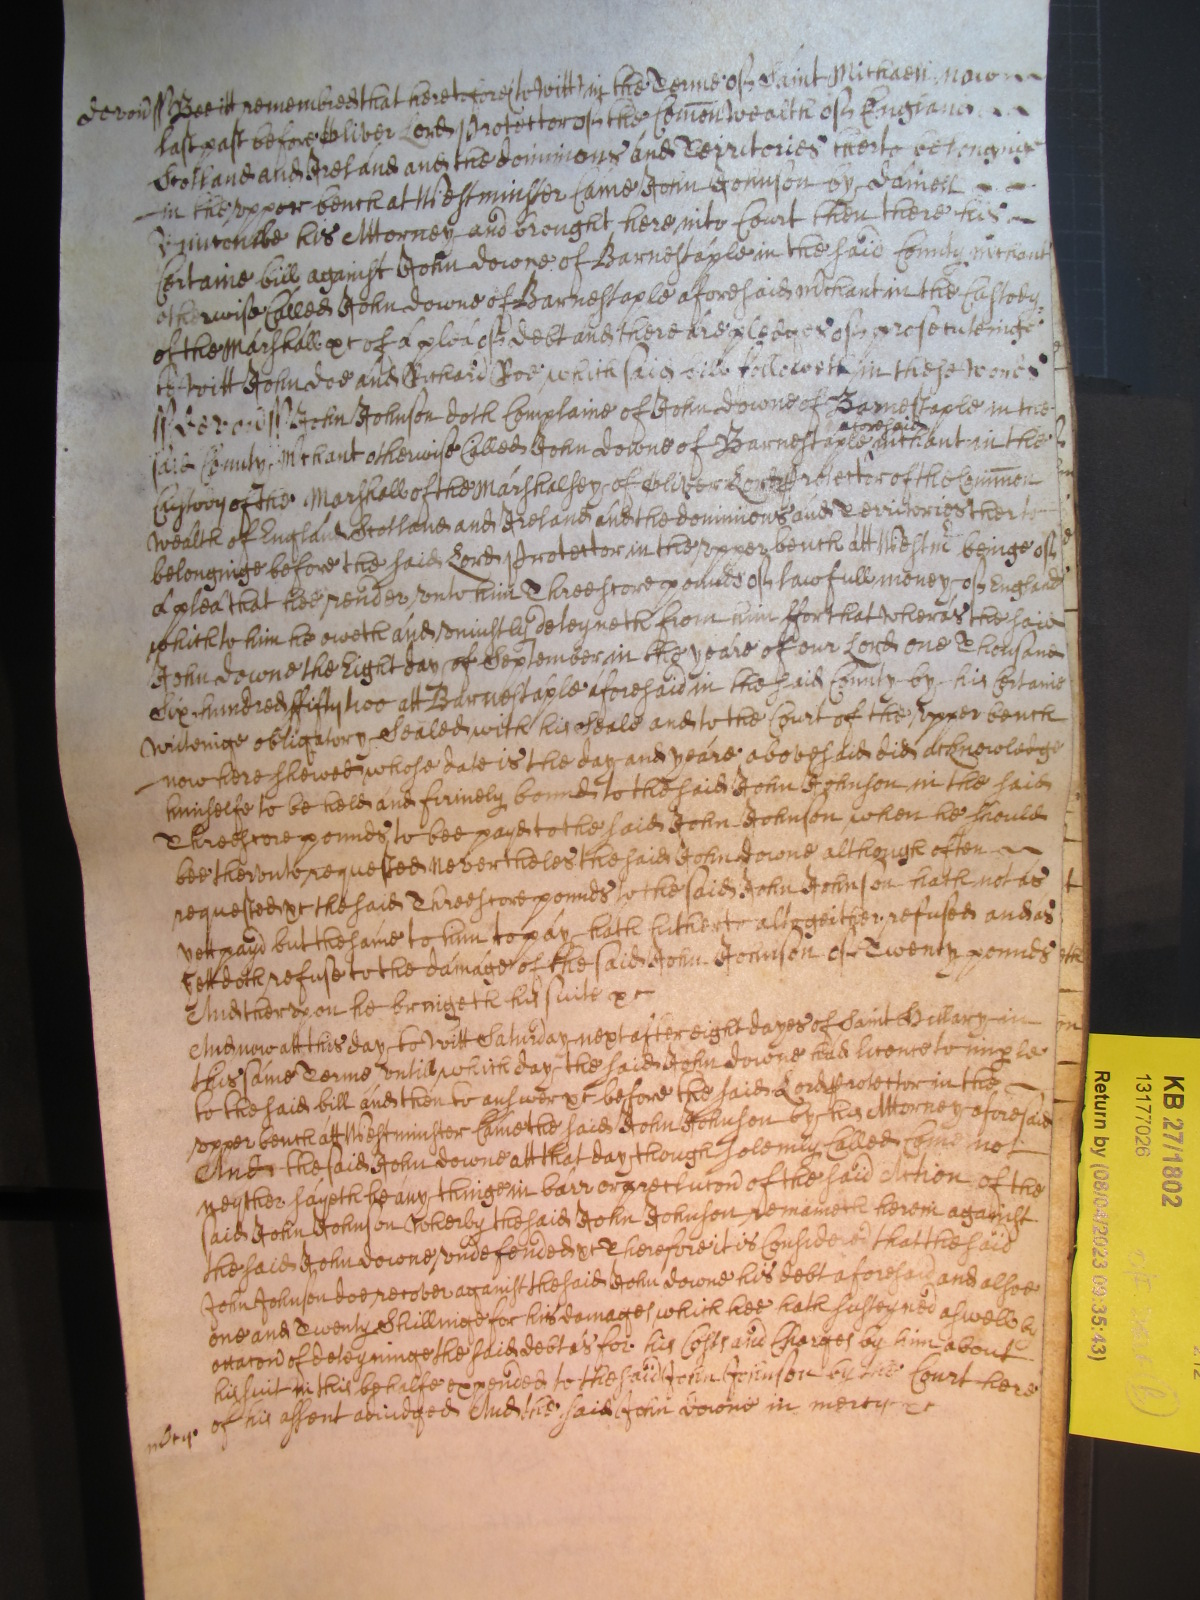 Devon ss Bee itt remembred that heretofore (to Witt) in the Terme of Saint Michaell now
last past before Oliver Lord Protector of the Com̄on Wealth of England
Scotland and Ireland and the dominions and Territories therto belonginge
in the upper bench at Westminster Came John Johnson by Daniell
his Attorney and brought here into Court then there his
Certaine bill against John Downe of Barnestaple in the said County m̃chant
otherwise Called John Downe of Barnestaple aforesaid m̃chant in the Custody
of the Marshall &c of a plea of debt and there are pledges of prosecuteinge
to Witt John Doe and Richard Roe which said bill followeth in these Words
ss Devon ss John Johnson doth Complaine of John Downe of Barnestaple in the
said County m̃chant otherwise Called John Downe of Barnestaple aforesaid m̃chant in the
Custody of the Marshall of the Marshalsey of Oliver Lord Protector of the Com̄on
Wealth of England Scotland and Ireland and the dominions and Territories therto
belonginge before the said Lord Protector in the upper bench att Westm̃ beinge of
a plea that hee render unto him Threescore pounds of lawfull money of England
which to him he oweth and uniustly deteyneth from him ffor that wheras the said
John Downe the Eight day of September in the yeare of our Lord one Thousand
Six hundred ffifty two att Barnestaple aforesaid in the said County by his Certaine
writeinge obligatory Sealed with his Seale and to the Court of the upper bench
now here shewed whose date is the day and yeare abovesaid did acknowledge
himselfe to be held and firmely bound to the said John Johnson in the said
Threescore pounds to bee payd to the said John Johnson when he should
bee therunto requested Neverthelesse the said John Downe although often
requested &c the said Threescore pounds to the said John Johnson hath not as
yett payd but the same to him to pay hath hitherto altogeither refused and as
yett doth refuse to the damage of the said John Johnson of Twenty pounds
And therupon he bringeth his suite &c
And now att this day to Witt Saturday next after eight dayes of Saint Hillary in
this same Terme untill which day the said John Downe had licence to imple
to the said bill and then to answer &c before the said Lord Protector in the
upper bench att Westminster Came the said John Johnson by his Attorney aforesaid
And the said John Downe att that day though solemnly Called Came not
neyther sayeth he any thinge in barr or preclucon of the said Action of the
said John Johnson Wherby the said John Johnson remaineth herein against
the said John Downe undefended &c Therefore it is Considered that the said
John Johnson doe recover against the said John Downe his debt aforesaid and alsoe
one and Twenty Shillings for his damages which hee hath susteyned aswell by
occacon of deteyninge the said debt as for his Costs and Charges by him about
his suit in this behalfe expended to the said John Johnson by the Court here
of his assent adiudged And the said John Downe in mercy &c
mercy
KB 27/1802
13177026
Return by (08/04/2023 09:35:43)